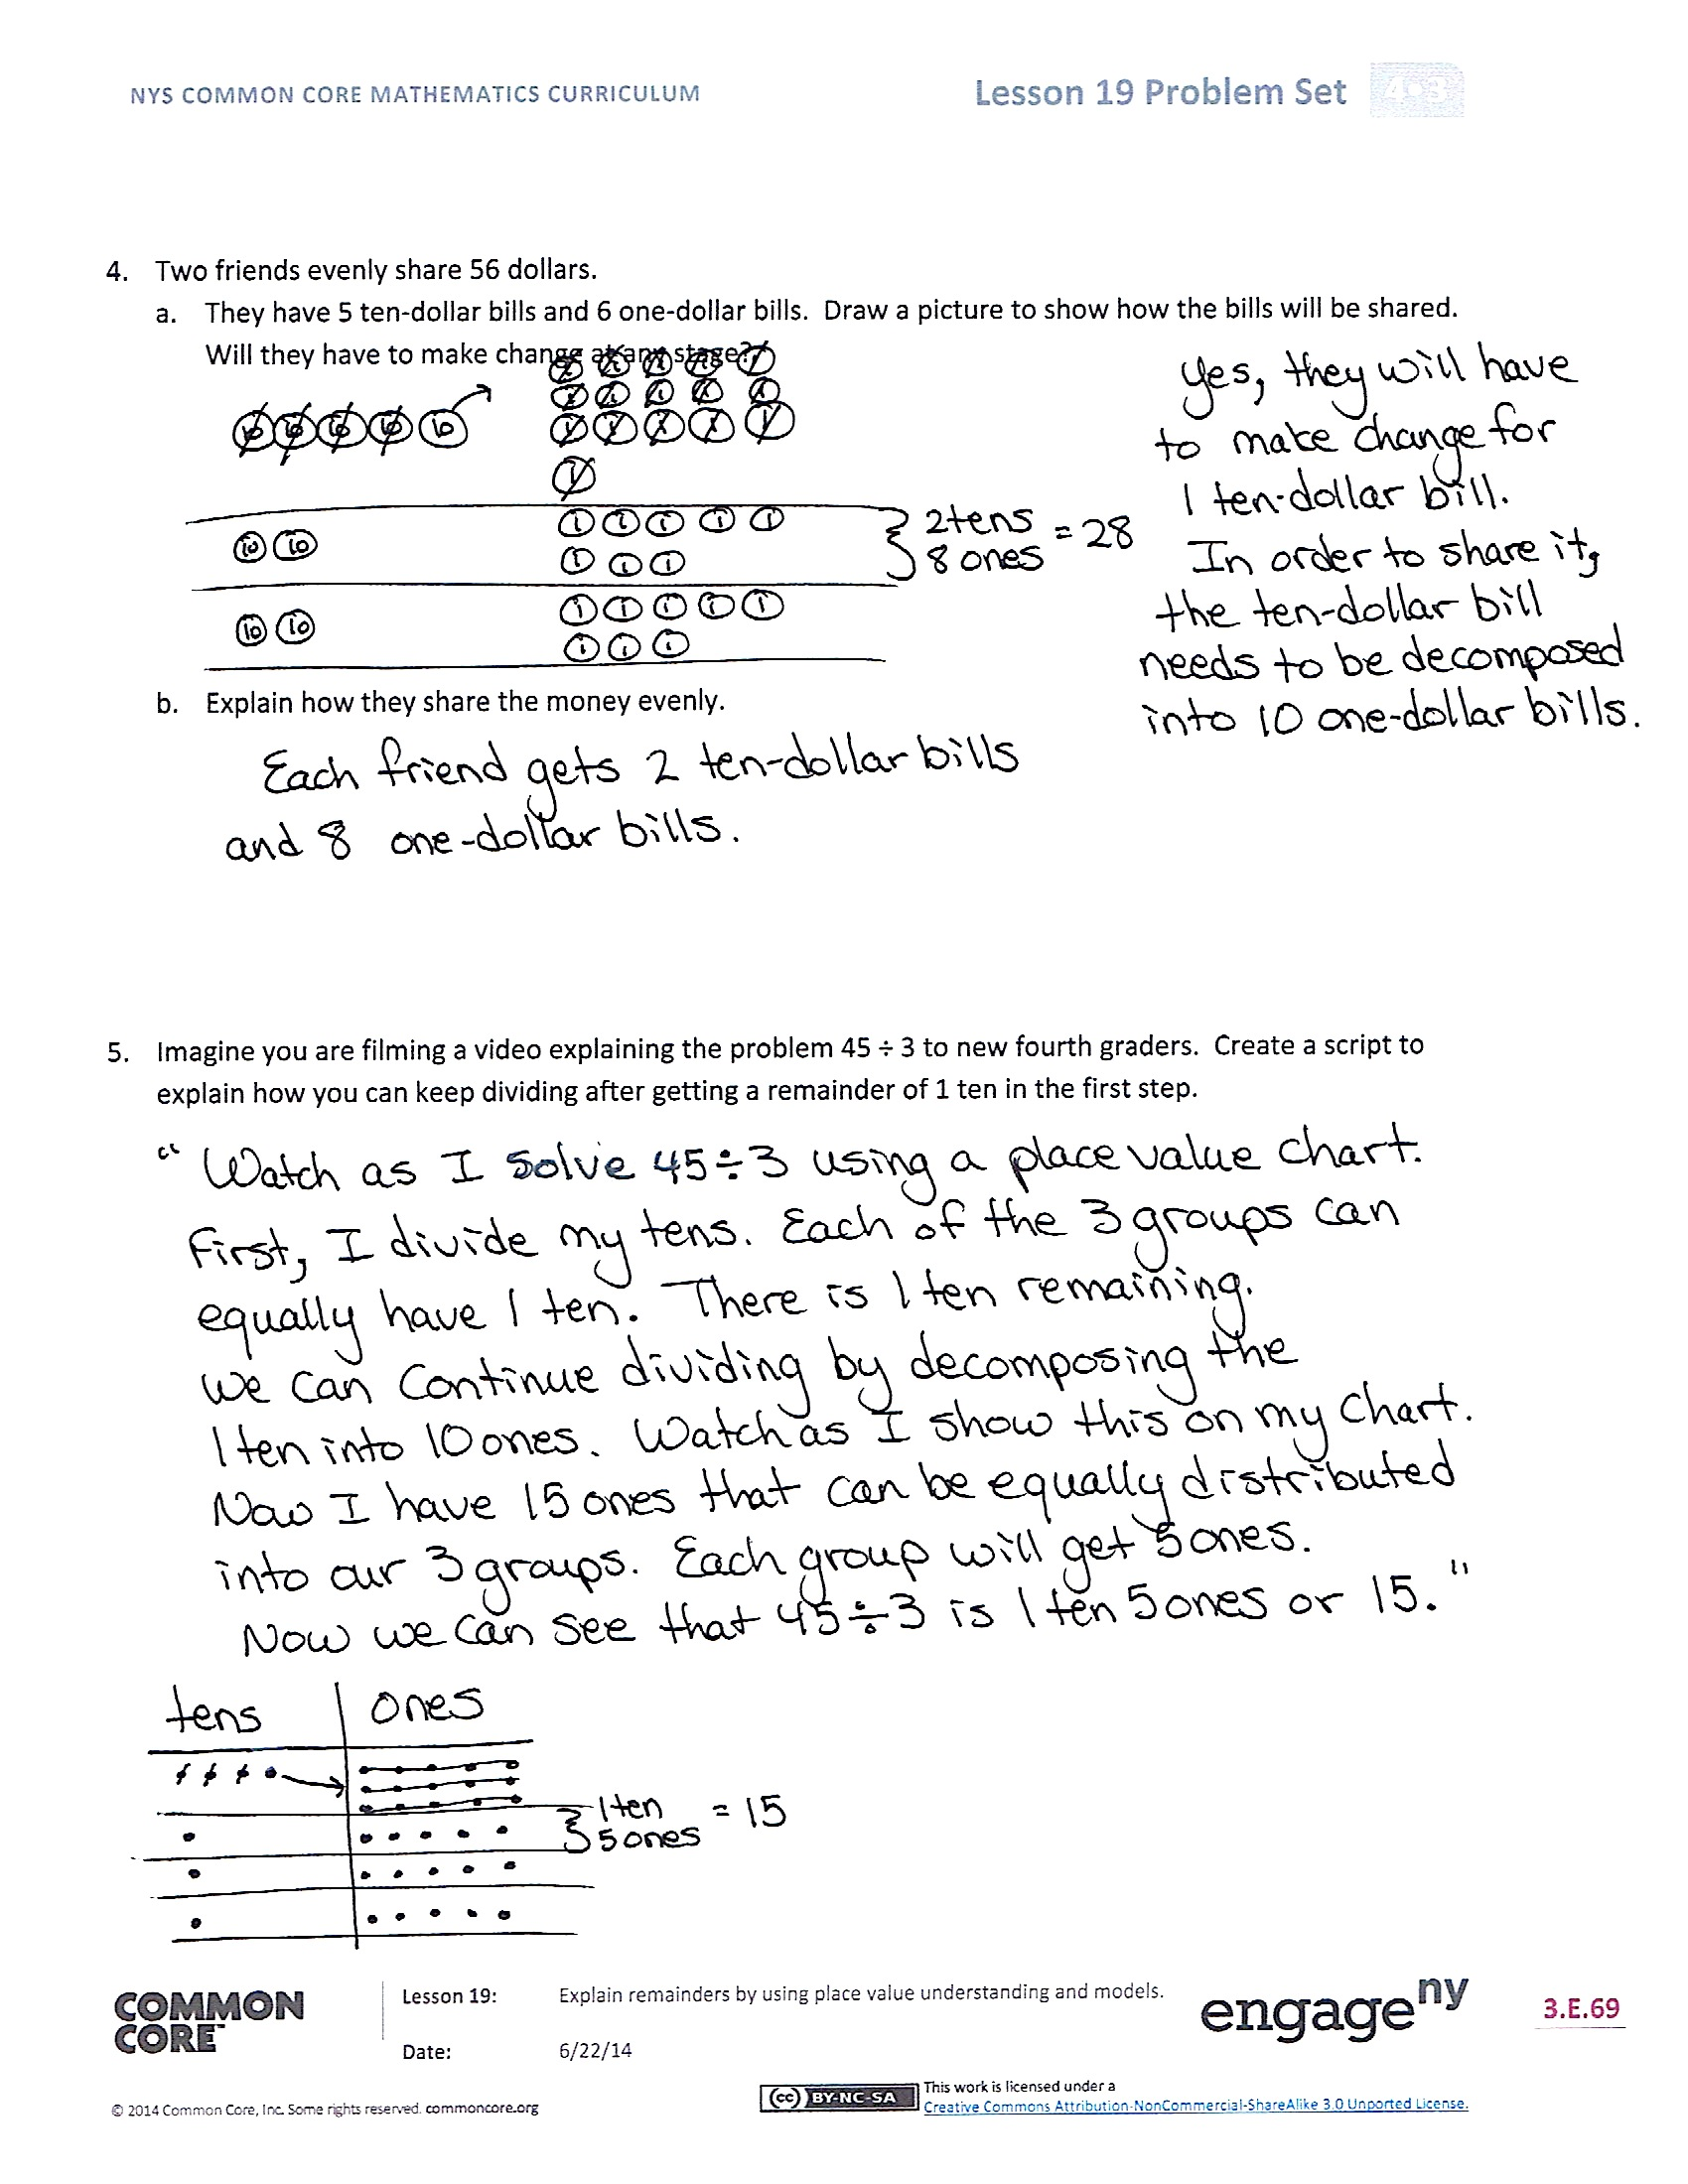 NYS COMMON CORE MATHEMATICS CURRICULUM
Lesson 19 Problem Set 4•3
4. Two friends evenly share 56 dollars.
a. They have 5 ten-dollar bills and 6 one-dollar bills. Draw a picture to show how the bills will be shared.
Will they have to make change at any stage?
10 10 10 10 10
1 1 1 1 1
1 1 1 1 1
1 1 1 1 1
1
10 10
1 1 1 1 1
1 1 1
2 tens
8 ones = 28
10 10
1 1 1 1 1
1 1 1
Yes, they will have
to make change for
1 ten-dollar bill.
In order to share it,
the ten-dollar bill
needs to be decomposed
into 10 one-dollar bills.
b. Explain how they share the money evenly.
Each friend gets 2 ten-dollar bills
and 8 one-dollar bills.
5. Imagine you are filming a video explaining the problem 45 ÷ 3 to new fourth graders. Create a script to
explain how you can keep dividing after getting a remainder of 1 ten in the first step.
"Watch as I solve 45÷3 using a place value chart.
First, I divide my tens. Each of the 3 groups can
equally have 1 ten. There is 1 ten remaining.
We can continue dividing by decomposing the
1 ten into 10 ones. Watch as I show this on my chart.
Now I have 15 ones that can be equally distributed
into our 3 groups. Each group will get 5 ones.
Now we can see that 45÷3 is 1 ten 5 ones or 15."
tens ones
1 ten
5 ones = 15
COMMON
CORE™
Lesson 19: Explain remainders by using place value understanding and models.
Date: 6/22/14
engage ny
3.E.69
© 2014 Common Core, Inc. Some rights reserved. commoncore.org
(cc) BY-NC-SA
This work is licensed under a
Creative Commons Attribution-NonCommercial-ShareAlike 3.0 Unported License.